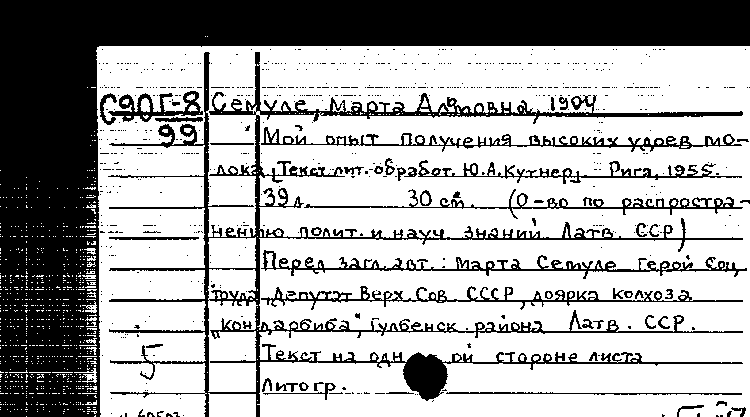 С90 Г-8 Семуле, Марта Алтовна, 1904
99 Мой опыт получения высоких удоев мо-
лока [Текст лит. обработ. Ю.А.Кутнер]. Рига, 1955.
39 л. 30 см. (О-во по распростра-
нению полит. и науч. знаний Латв. ССР)
Перед загл. авт.: Марта Семуле Герой Соц
труда, Депутат Верх. Сов. СССР, доярка колхоза
"кон дарбиба", Гулбенск. района Латв. ССР.
5 Текст на одной стороне листа
Литогр.